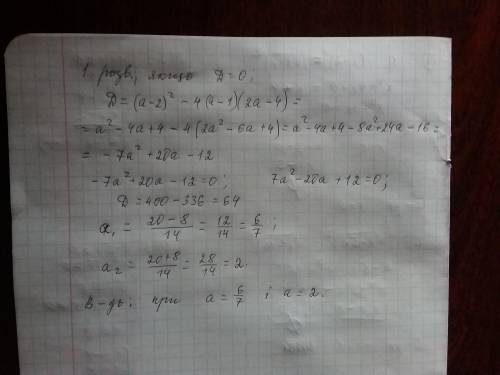 1 розв, якщо D=0.
D = (a-2)² - 4(a-1)(2a-4) =
= a² - 4a + 4 - 4(2a² - 6a + 4) = a² - 4a + 4 - 8a² + 24a - 16 =
= -7a² + 20a - 12
-7a² + 20a - 12 = 0; 7a² - 20a + 12 = 0;
D = 400 - 336 = 64
a₁ = (20-8)/14 = 12/14 = 6/7;
a₂ = (20+8)/14 = 28/14 = 2.
В-дь: при a = 6/7 і a = 2.